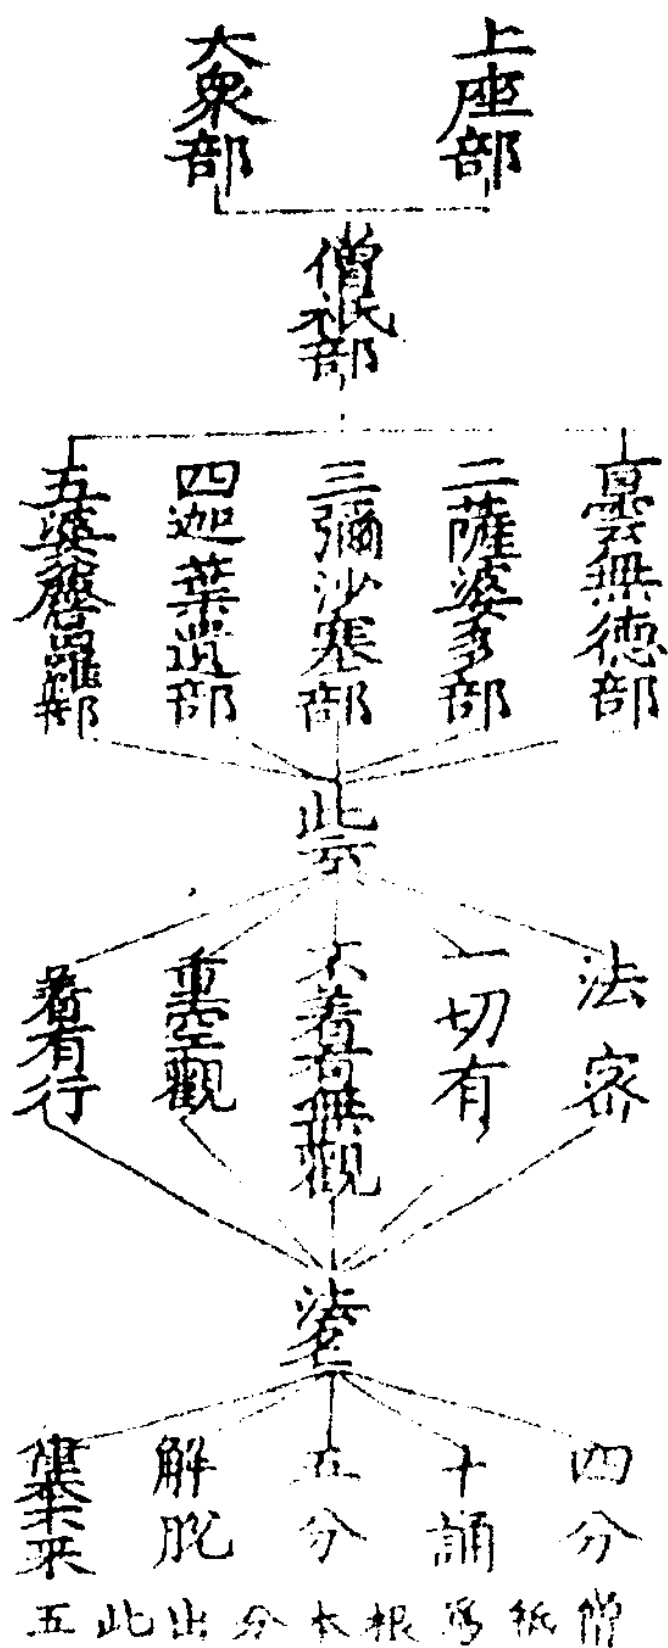 上座部
大眾部
僧祇部
曇無德部
二薩婆多部
三彌沙塞部
四迦葉遺部
五婆麤羅部
此云
法密
一切有
不著有無觀
重空觀
著有行
法名
四分
十誦
五分
解脫
律本未來
僧祇為根本分出此五